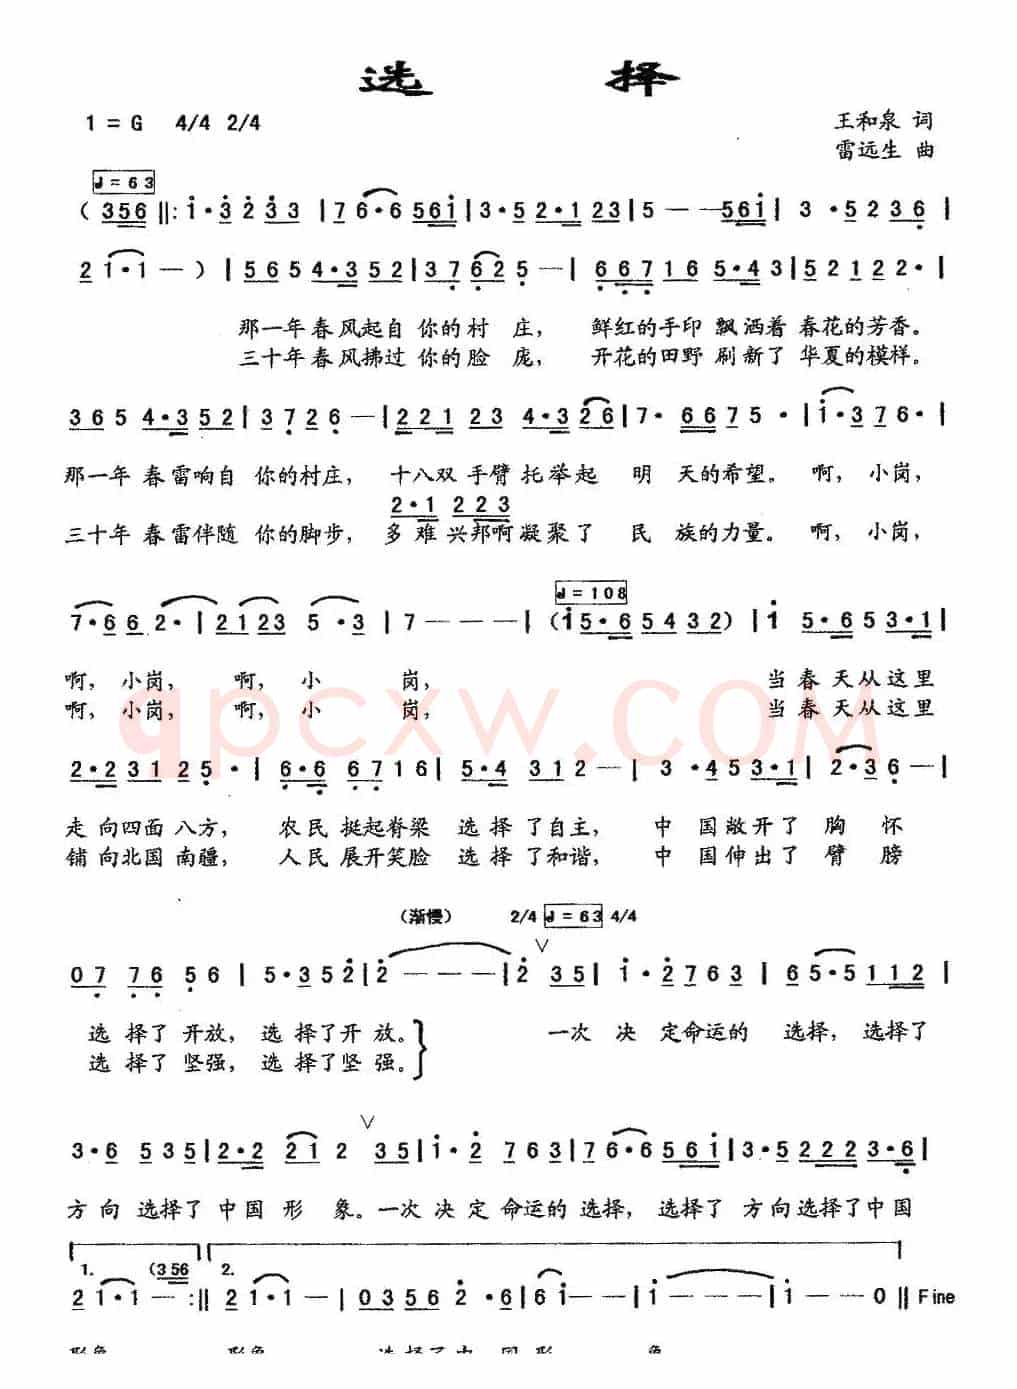 选 择
1 = G 4/4 2/4
王和泉 词
雷远生 曲
♩= 63
( 356 ‖: 1·3 2 3 3 | 7 6·6 561 | 3·5 2·1 23 | 5 — — 561 | 3 ·5 2 3 6 |
2 1·1 — ) | 5 6 5 4·3 5 2 | 3 7 6 2 5 — | 6 6 7 1 6 5·4 3 | 5 2 1 2 2· |
那一年春风起自 你的村 庄， 鲜红的手印 飘洒着 春花的芳香。
三十年春风拂过 你的脸 庞， 开花的田野 刷新了 华夏的模样。
3 6 5 4·3 5 2 | 3 7 2 6 — | 2 2 1 2 3 4·3 2 6 | 7· 6 6 7 5 · | 1·3 7 6· |
那一年 春雷响自 你的村庄， 十八双 手臂 托举起 明 天的希望。 啊， 小岗，
2·1 2 2 3
三十年 春雷伴随 你的脚步， 多 难 兴邦啊 凝聚了 民 族的力量。 啊， 小岗，
♩= 108
7·6 6 2· | 2 1 2 3 5 ·3 | 7 — — — | (1 5·6 5 4 3 2) | 1 5·6 5 3·1 |
啊， 小岗， 啊， 小 岗， 当 春 天从这里
啊， 小岗， 啊， 小 岗， 当 春 天从这里
2·2 3 1 2 5 · | 6·6 6 7 1 6 | 5·4 3 1 2 — | 3 ·4 5 3·1 | 2·3 6 — |
走 向四面 八方， 农民 挺起脊梁 选 择 了自主， 中 国敞开了 胸 怀
铺 向北国 南疆， 人民 展开笑脸 选 择 了和谐， 中 国伸出了 臂 膀
(渐慢) 2/4 ♩= 63 4/4
0 7 7 6 5 6 | 5·3 5 2 | 2 — — — | 2 ∨ 3 5 | 1·2 7 6 3 | 6 5·5 1 1 2 |
选 择了 开放， 选 择了开 放。 } 一次 决 定命运的 选择， 选择了
选 择了 坚强， 选 择了坚 强。
3·6 5 3 5 | 2·2 2 1 2 ∨ 3 5 | 1·2 7 6 3 | 7 6·6 5 6 1 | 3·5 2 2 2 3·6 |
方 向 选择了 中国 形 象。一次 决 定 命运的 选择， 选择了 方向选择了中国
1. (3 56 2.
2 1·1 — :‖ 2 1·1 — | 0 3 5 6 2 ·6 | 6 1 — — | 1 — — — | 1 — 0 ‖ Fine
qpcxw.COM